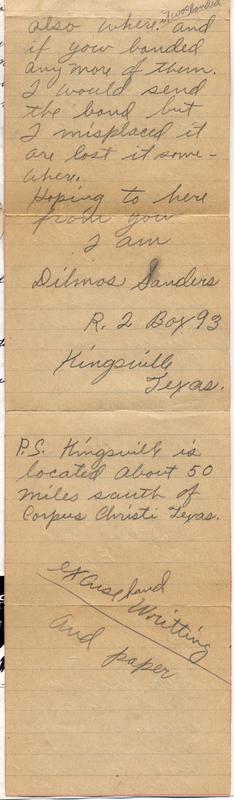 also where. and I was banded
if your banded
any more of them.
I would send
the band but
I misplaced it
are lost it some-
where.
Hoping to here
from you
I am
Dilmos Sanders
R. 2 Box 93
Kingsville
Texas.
P.S. Kingsville is
located about 50
miles south of
Corpus Christi Texas.
excuse hand
Writting
and
paper